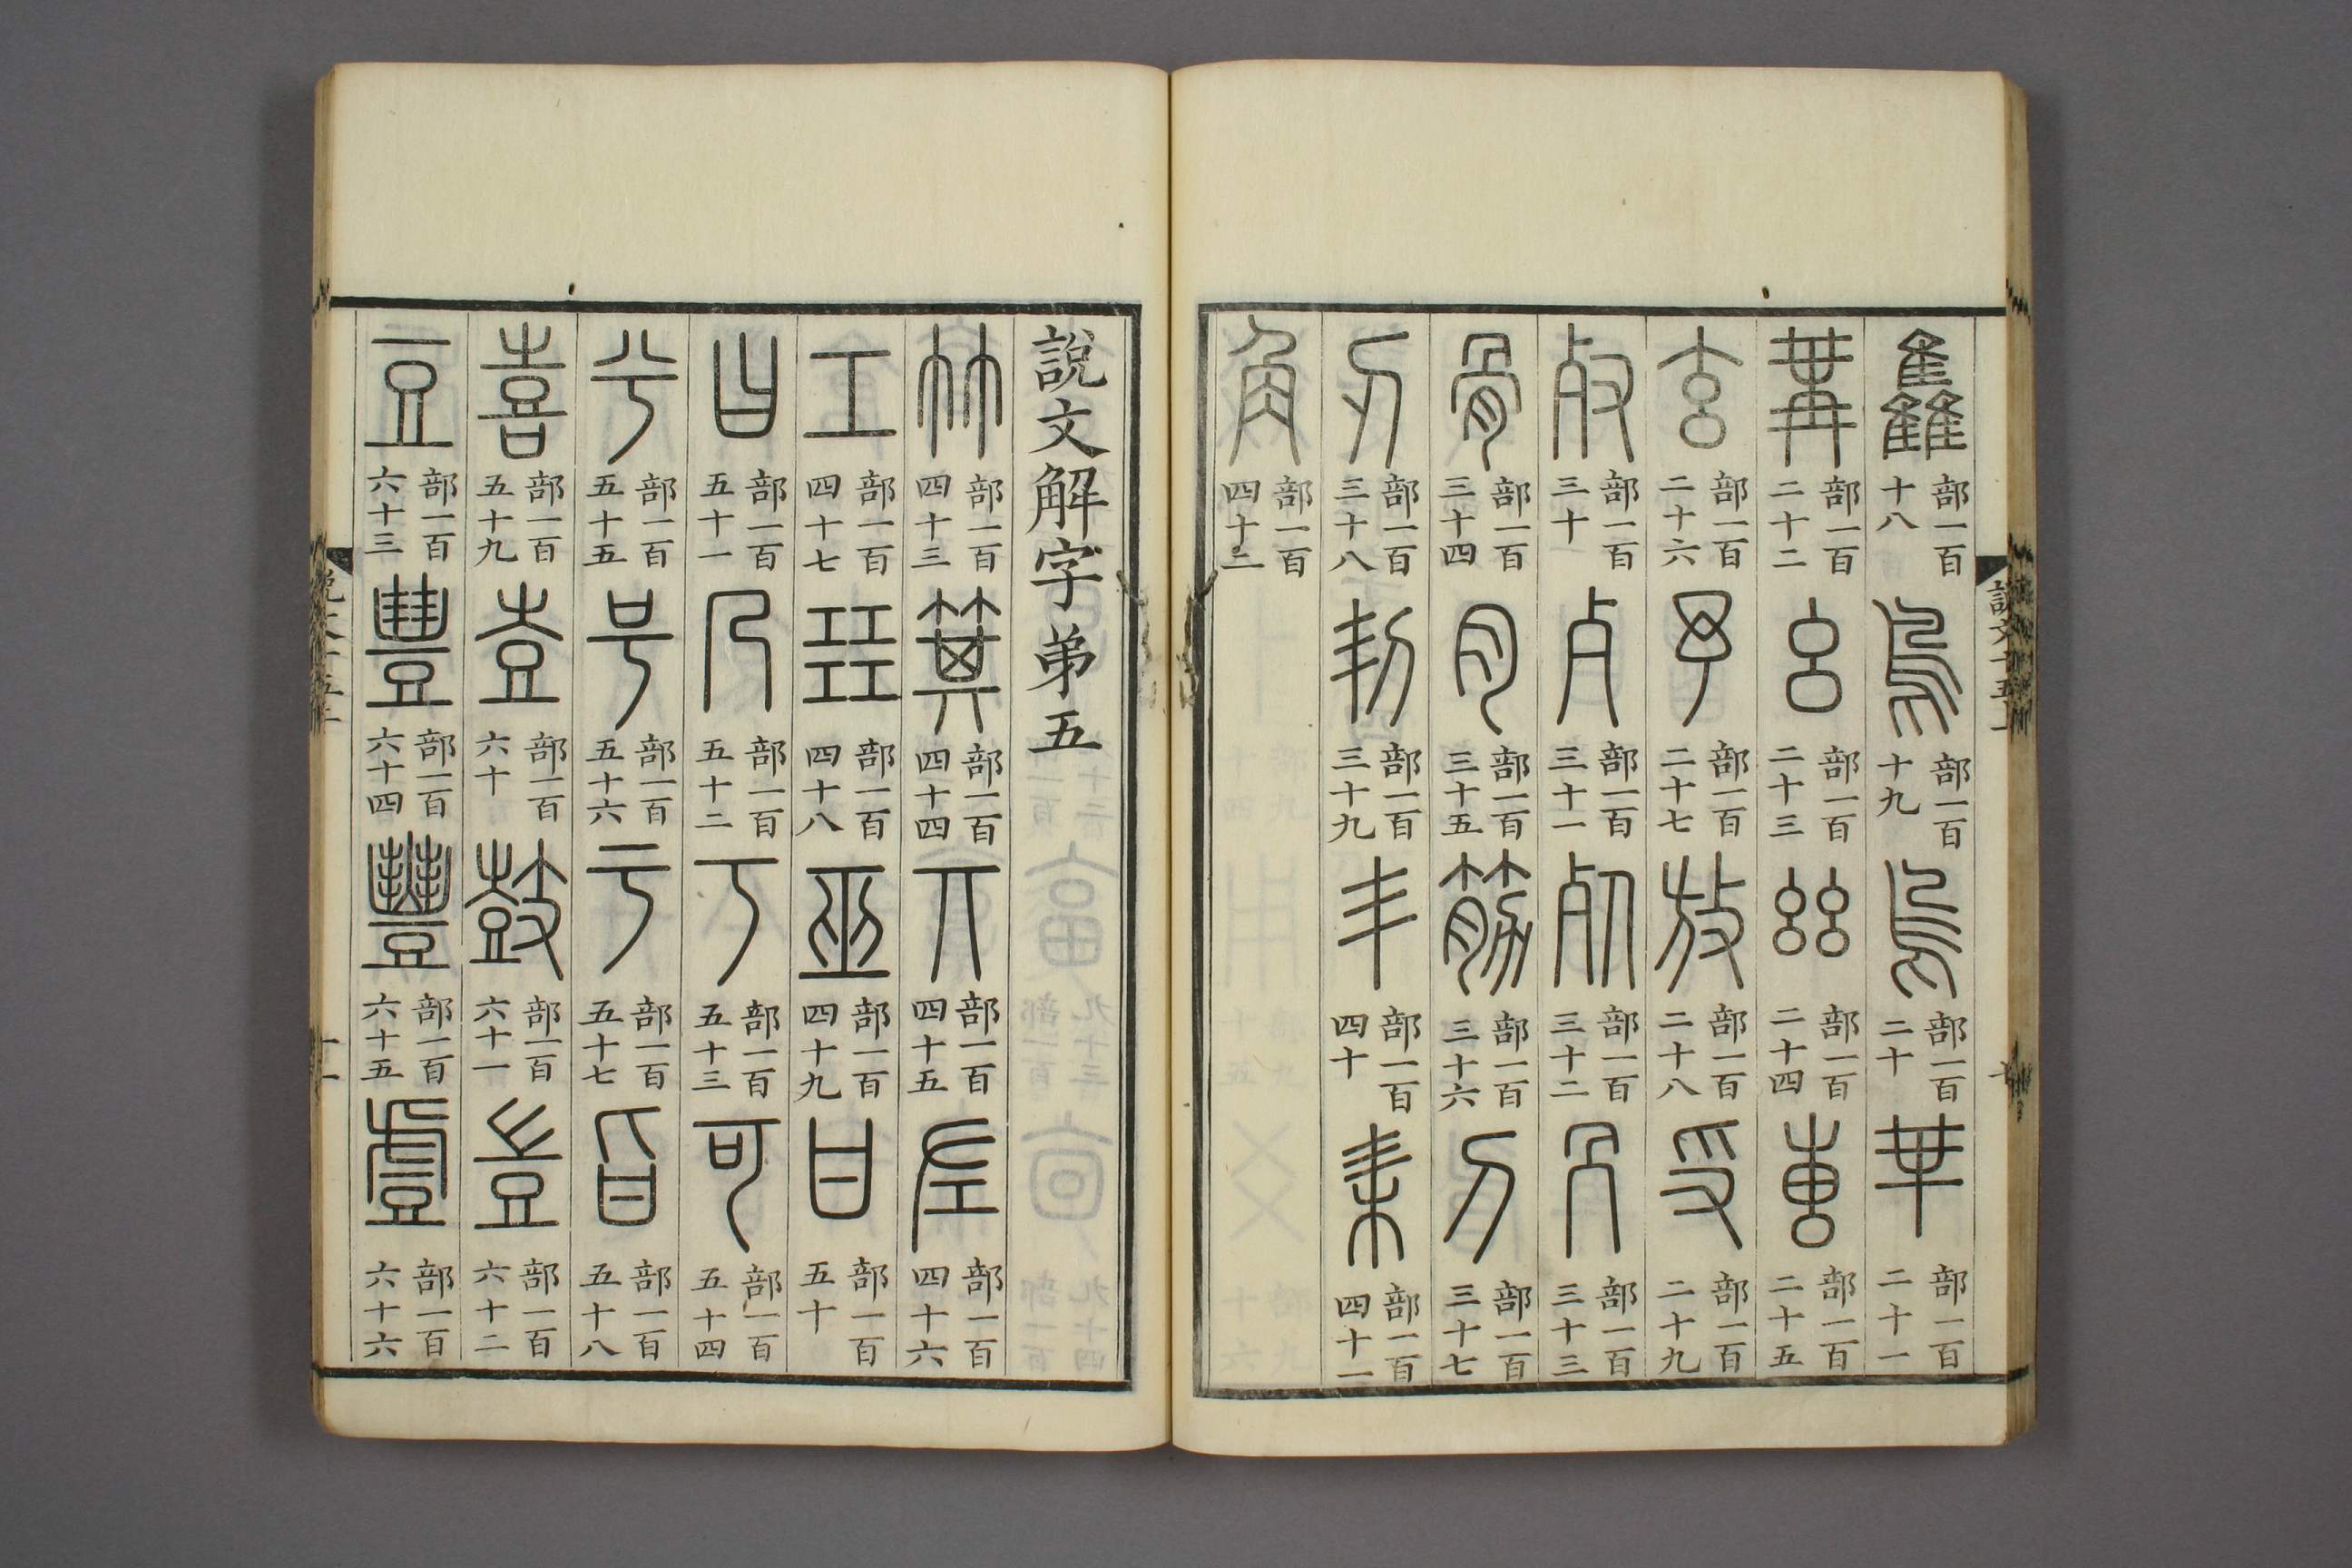 說文十五上
雥部一百十八鳥部一百十九烏部一百二十𠦒部一百二十一
冓部一百二十二幺部一百二十三𢆶部一百二十四叀部一百二十五
玄部一百二十六予部一百二十七放部一百二十八𠬪部一百二十九
𣦼部一百三十歺部一百三十一死部一百三十二冎部一百三十三
骨部一百三十四肉部一百三十五筋部一百三十六刀部一百三十七
刃部一百三十八㓞部一百三十九丯部一百四十耒部一百四十一
角部一百四十二
說文解字弟五
竹部一百四十三箕部一百四十四丌部一百四十五左部一百四十六
工部一百四十七㠭部一百四十八巫部一百四十九甘部一百五十
曰部一百五十一乃部一百五十二丂部一百五十三可部一百五十四
兮部一百五十五号部一百五十六亏部一百五十七旨部一百五十八
喜部一百五十九壴部一百六十鼓部一百六十一豈部一百六十二
豆部一百六十三豊部一百六十四豐部一百六十五䖒部一百六十六